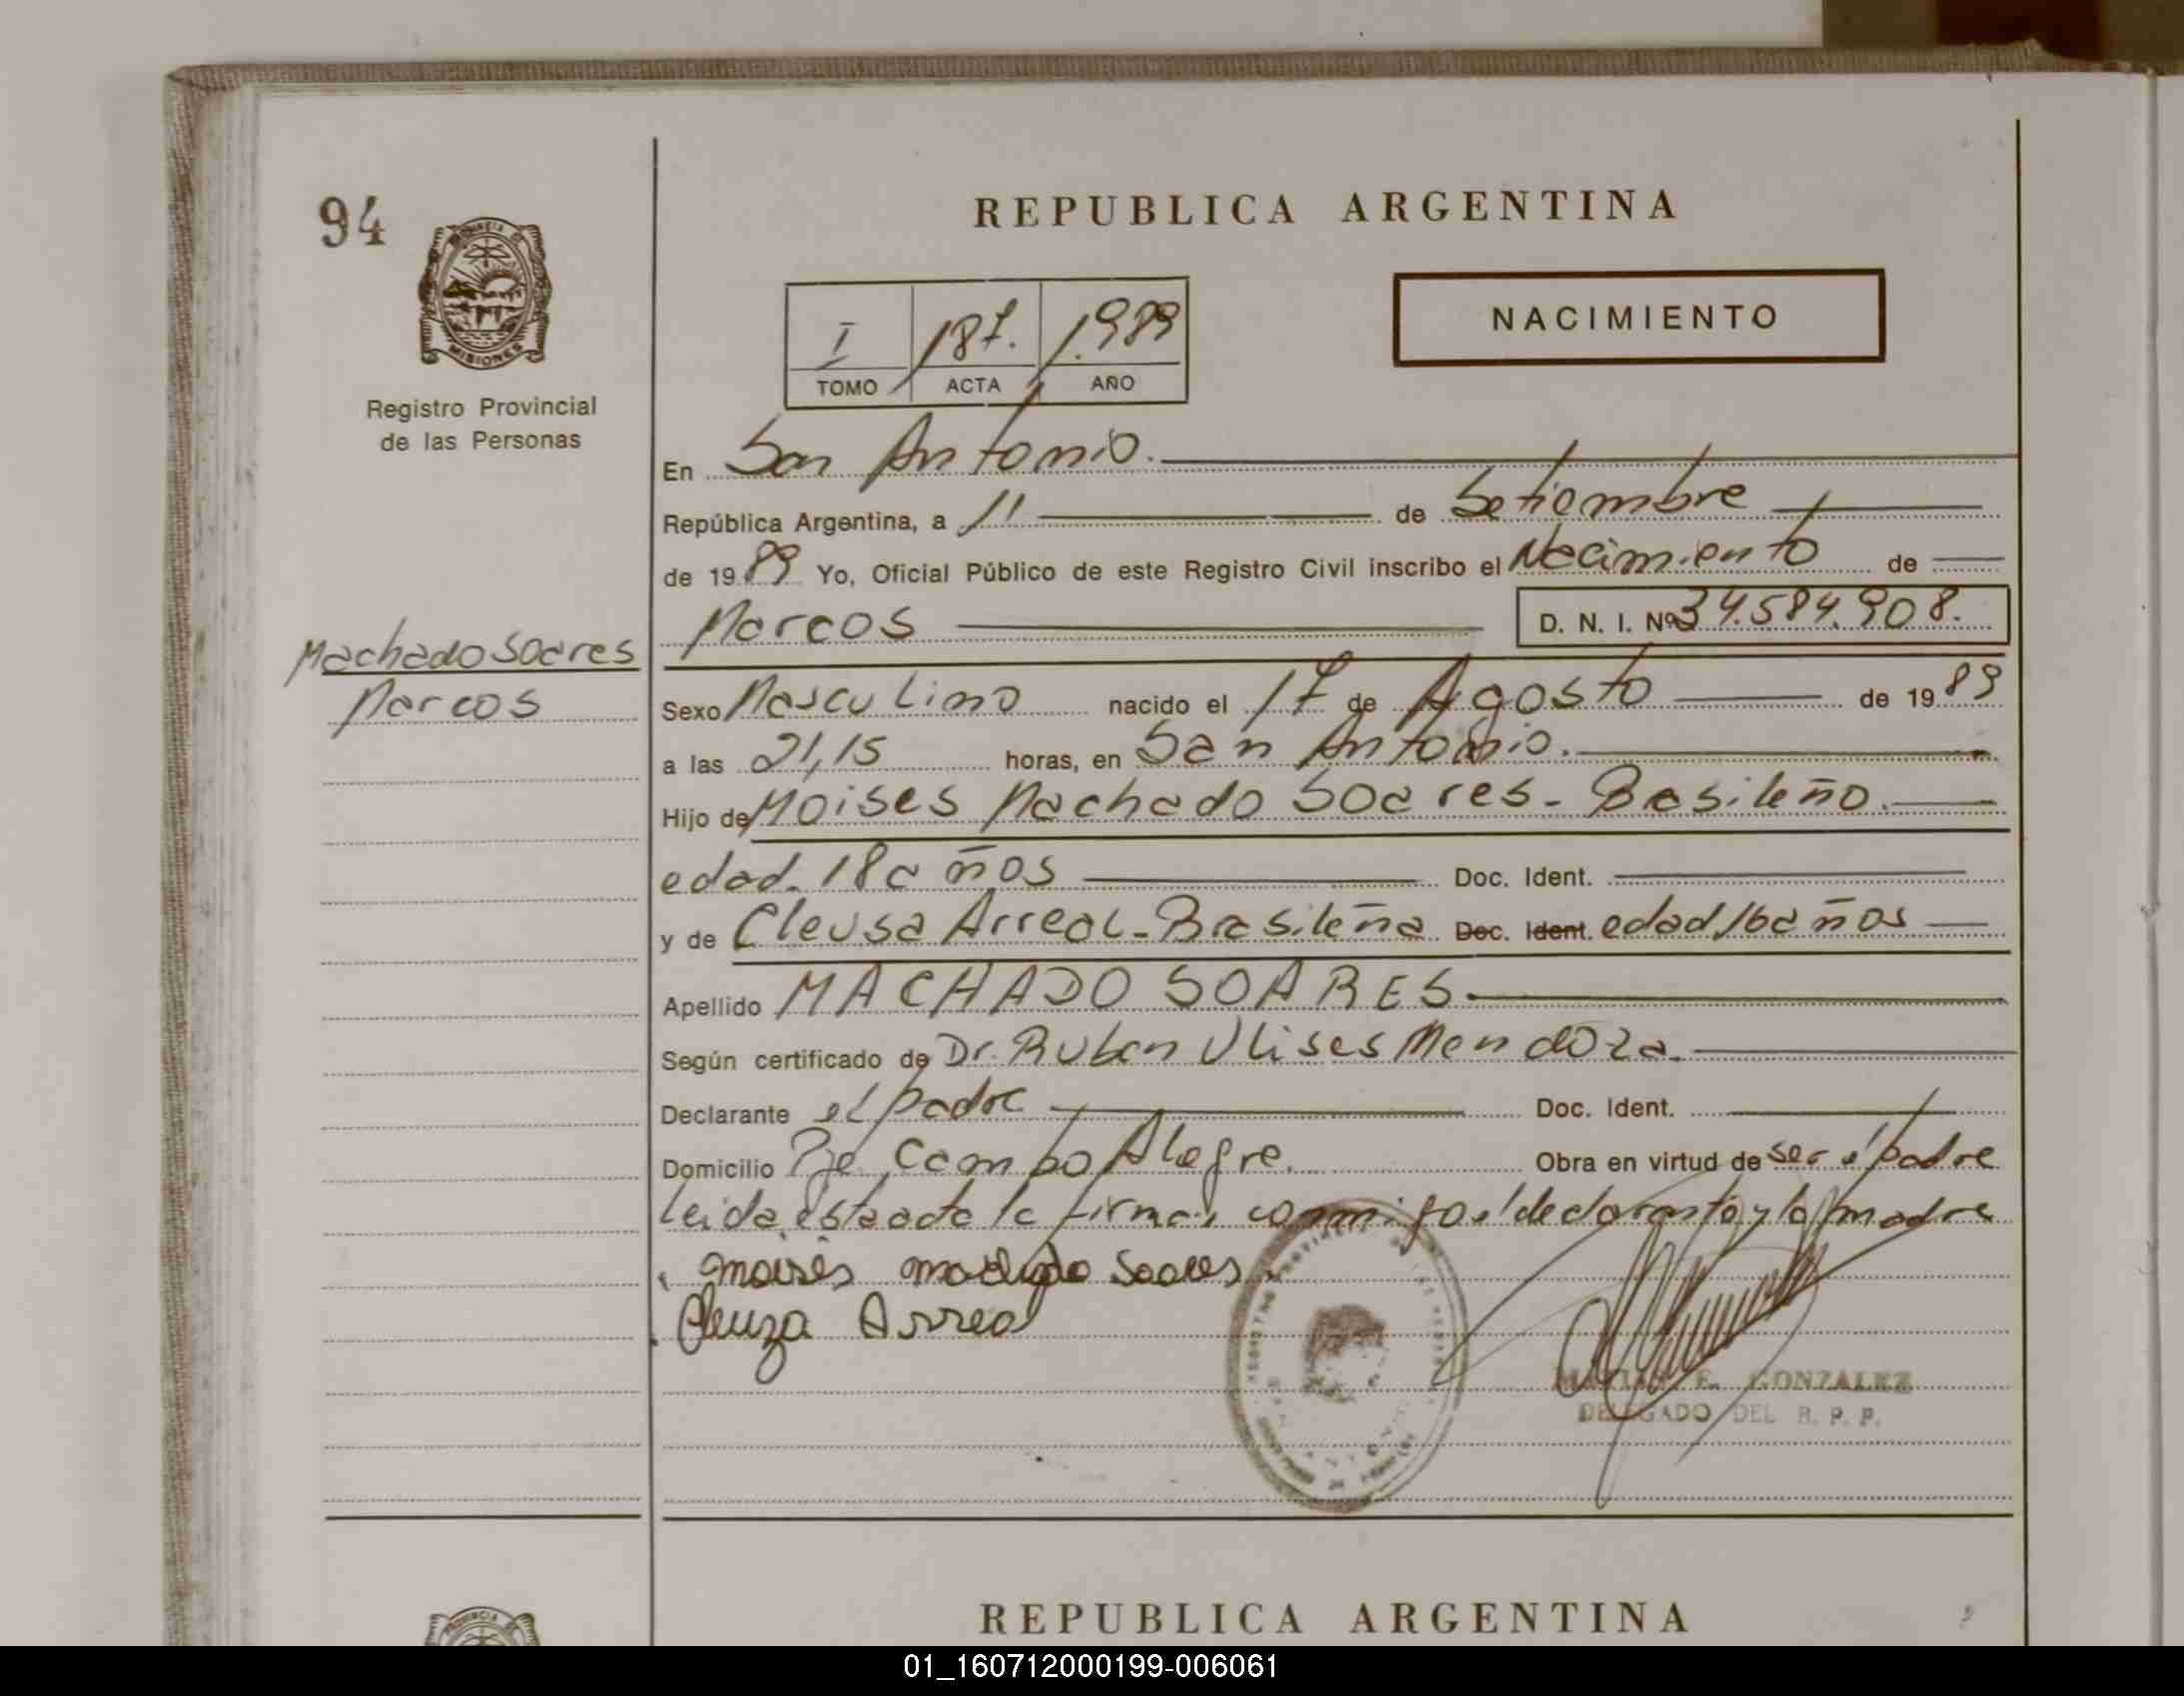 94
REPUBLICA ARGENTINA
PROVINCIA DE
MISIONES
Registro Provincial
de las Personas
I 187. 1.989
TOMO ACTA AÑO
NACIMIENTO
En San Antonio.
República Argentina, a 11 de Setiembre
de 1989 Yo, Oficial Público de este Registro Civil inscribo el Nacimiento de
Marcos D. N. I. Nº 34.584.908.
Machado Soares
Marcos
Sexo Masculino nacido el 17 de Agosto de 1989
a las 21,15 horas, en San Antonio.
Hijo de Moises Machado Soares - Brasileño.
edad. 18 años Doc. Ident.
y de Cleusa Arreal - Brasileña Doc. Ident. edad 16 años
Apellido MACHADO SOARES.
Según certificado de Dr. Ruben Ulises Mendoza.
Declarante el padre Doc. Ident.
Domicilio Pje Campo Alegre. Obra en virtud de ser el padre
Leida esta acta la firman conmigo el declarante y la madre
moisés machado Soares
Cleuza Arreal
E. GONZALEZ
DELEGADO DEL R. P. P.
PROVINCIA
REPUBLICA ARGENTINA
01_160712000199-006061